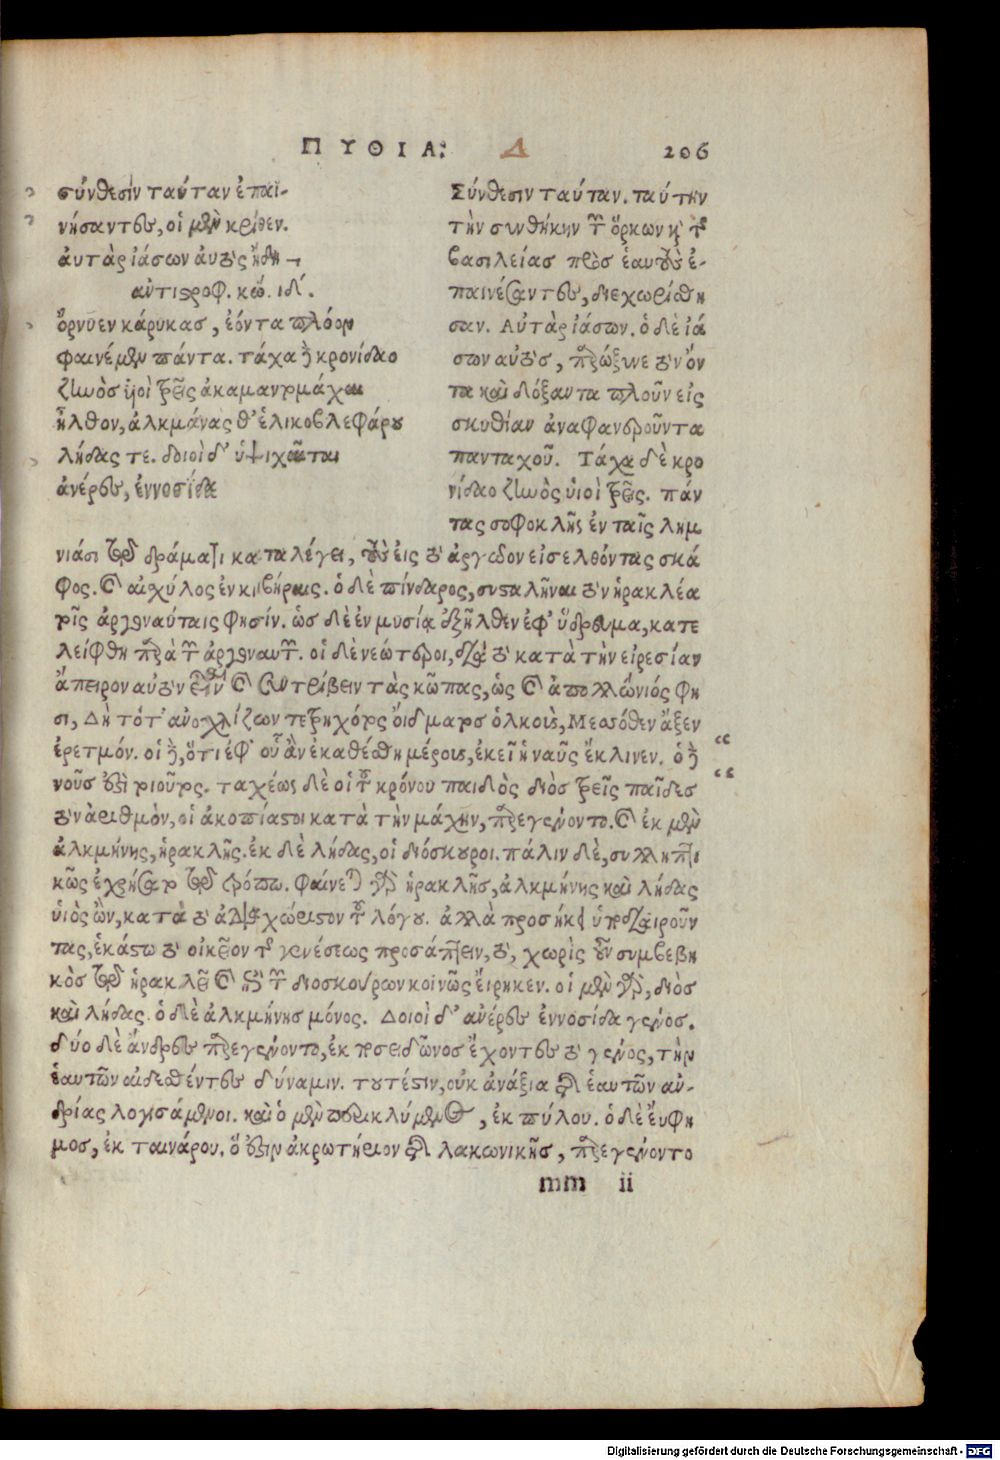 ΠΥΘΙΑ: Δ 206
σύνθεσιν ταύταν ἐπαι-
νήσαντες, οἱ μὲν κρίθεν.
ἀυτὰρ ἰάσων ἀυτὸς ἤδη
ἀντιστροφ. κώ. ιδ́.
ὄρνυεν κάρυκας, ἐόντα πλόον
φαινέμεν πάντα. τάχα δὲ κρονίδαο
ζηνὸς ὑιοὶ τρεῖς ἀκαμαντομάχαι
ἦλθον, ἀλκμάνας θ' ἑλικοβλεφάρου
λήδας τε. δοιοὶ δ' ὑψιχαῖται
ἀνέρες, ἐννοσίδα
Σύνθεσιν ταύταν. ταύτην
τὴν συνθήκην τῶν ὅρκων καὶ τῆς
βασιλείας πρὸς ἑαυτοὺς ἐ-
παινέσαντες, διεχωρίσθη
σαν. Αὐτὰρ ἰάσων. ὁ δὲ ἰά
σων αὐτὸς, παρώξυνε τὸν ὄν
τα καὶ δόξαντα πλοῦν εἰς
σκυθίαν ἀναφανδροῦντα
πανταχοῦ. Τάχα δὲ κρο
νίδαο ζηνὸς ὑιοὶ τρεῖς. πάν
τας σοφοκλῆς ἐν ταῖς λημ
νιάσι τῷ δράματι καταλέγει, τοὺς εἰς τὸ ἀργῶον εἰσελθόντας σκά
φος. καὶ αἰσχύλος ἐν καβήροις. ὁ δὲ πίνδαρος, συσταλῆναι τὸν ἡρακλέα
τοῖς ἀργοναύταις φησίν. ὡς δὲ ἐν μυσίᾳ ἐξῆλθεν ἐφ' ὕδρευμα, κατε
λείφθη παρὰ τῶν ἀργοναυτῶν. οἱ δὲ νεώτεροι, διὰ τὸ κατὰ τὴν εἰρεσίαν
ἄπειρον αὐτὸν εἶναι καὶ συντρίβειν τὰς κώπας, ὡς καὶ ἀπολλώνιός φη
σι, Δὴ τότ' ἀνοχλίζων τετρηχότος οἴδματος ὁλκοὺς, Μεσόθεν ἄξεν
ἐρετμόν. οἱ δὲ, ὅτι ἐφ' οὗ ἂν ἐκαθέσθη μέρους, ἐκεῖ ἡ ναῦς ἔκλινεν. ὁ δὲ
νοῦς ἐστὶ τοιοῦτος. ταχέως δὲ οἱ τοῦ κρόνου παιδὸς διὸς τρεῖς παῖδες
τὸν ἀριθμὸν, οἱ ἀκοπίαστοι κατὰ τὴν μάχην, παρεγένοντο. καὶ ἐκ μὲν
ἀλκμήνης, ἡρακλῆς. ἐκ δὲ λήδας, οἱ διόσκουροι. πάλιν δὲ, συλληπτι
κῶς ἐχρήσατο τῷ τρόπῳ. φαίνεται γὰρ ἡρακλῆς, ἀλκμήνης καὶ λήδας
ὑιὸς ὢν, κατὰ τὸ ἀδιαχώριστον τοῦ λόγου. ἀλλὰ προσήκει ὑποδιαιροῦν
τας, ἑκάστῳ τὸ οἰκεῖον τῆς γενέσεως προσάπτειν, τὸ, χωρὶς οὖν συμβεβη
κὸς τῷ ἡρακλεῖ καὶ ἐπὶ τῶν διοσκούρων κοινῶς ἔιρηκεν. οἱ μὲν γὰρ, διὸς
καὶ λήδας. ὁ δὲ ἀλκμήνης μόνος. Δοιοὶ δ' ἀνέρες ἐννοσίδα γένος.
δύο δὲ ἄνδρες παρεγένοντο, ἐκ ποσειδῶνος ἔχοντες τὸ γένος, τὴν
ἑαυτῶν αἰδεσθέντες δύναμιν. τουτέστιν, οὐκ ἀνάξια τῆς ἑαυτῶν ἀν-
δρίας λογισάμενοι. καὶ ὁ μὲν περικλύμενος, ἐκ πύλου. ὁ δὲ ἔυφη
μος, ἐκ ταινάρου. ὅ ἐστιν ἀκρωτήριον τῆς λακωνικῆς, παρεγένοντο
mm ii
Digitalisierung gefördert durch die Deutsche Forschungsgemeinschaft - DFG